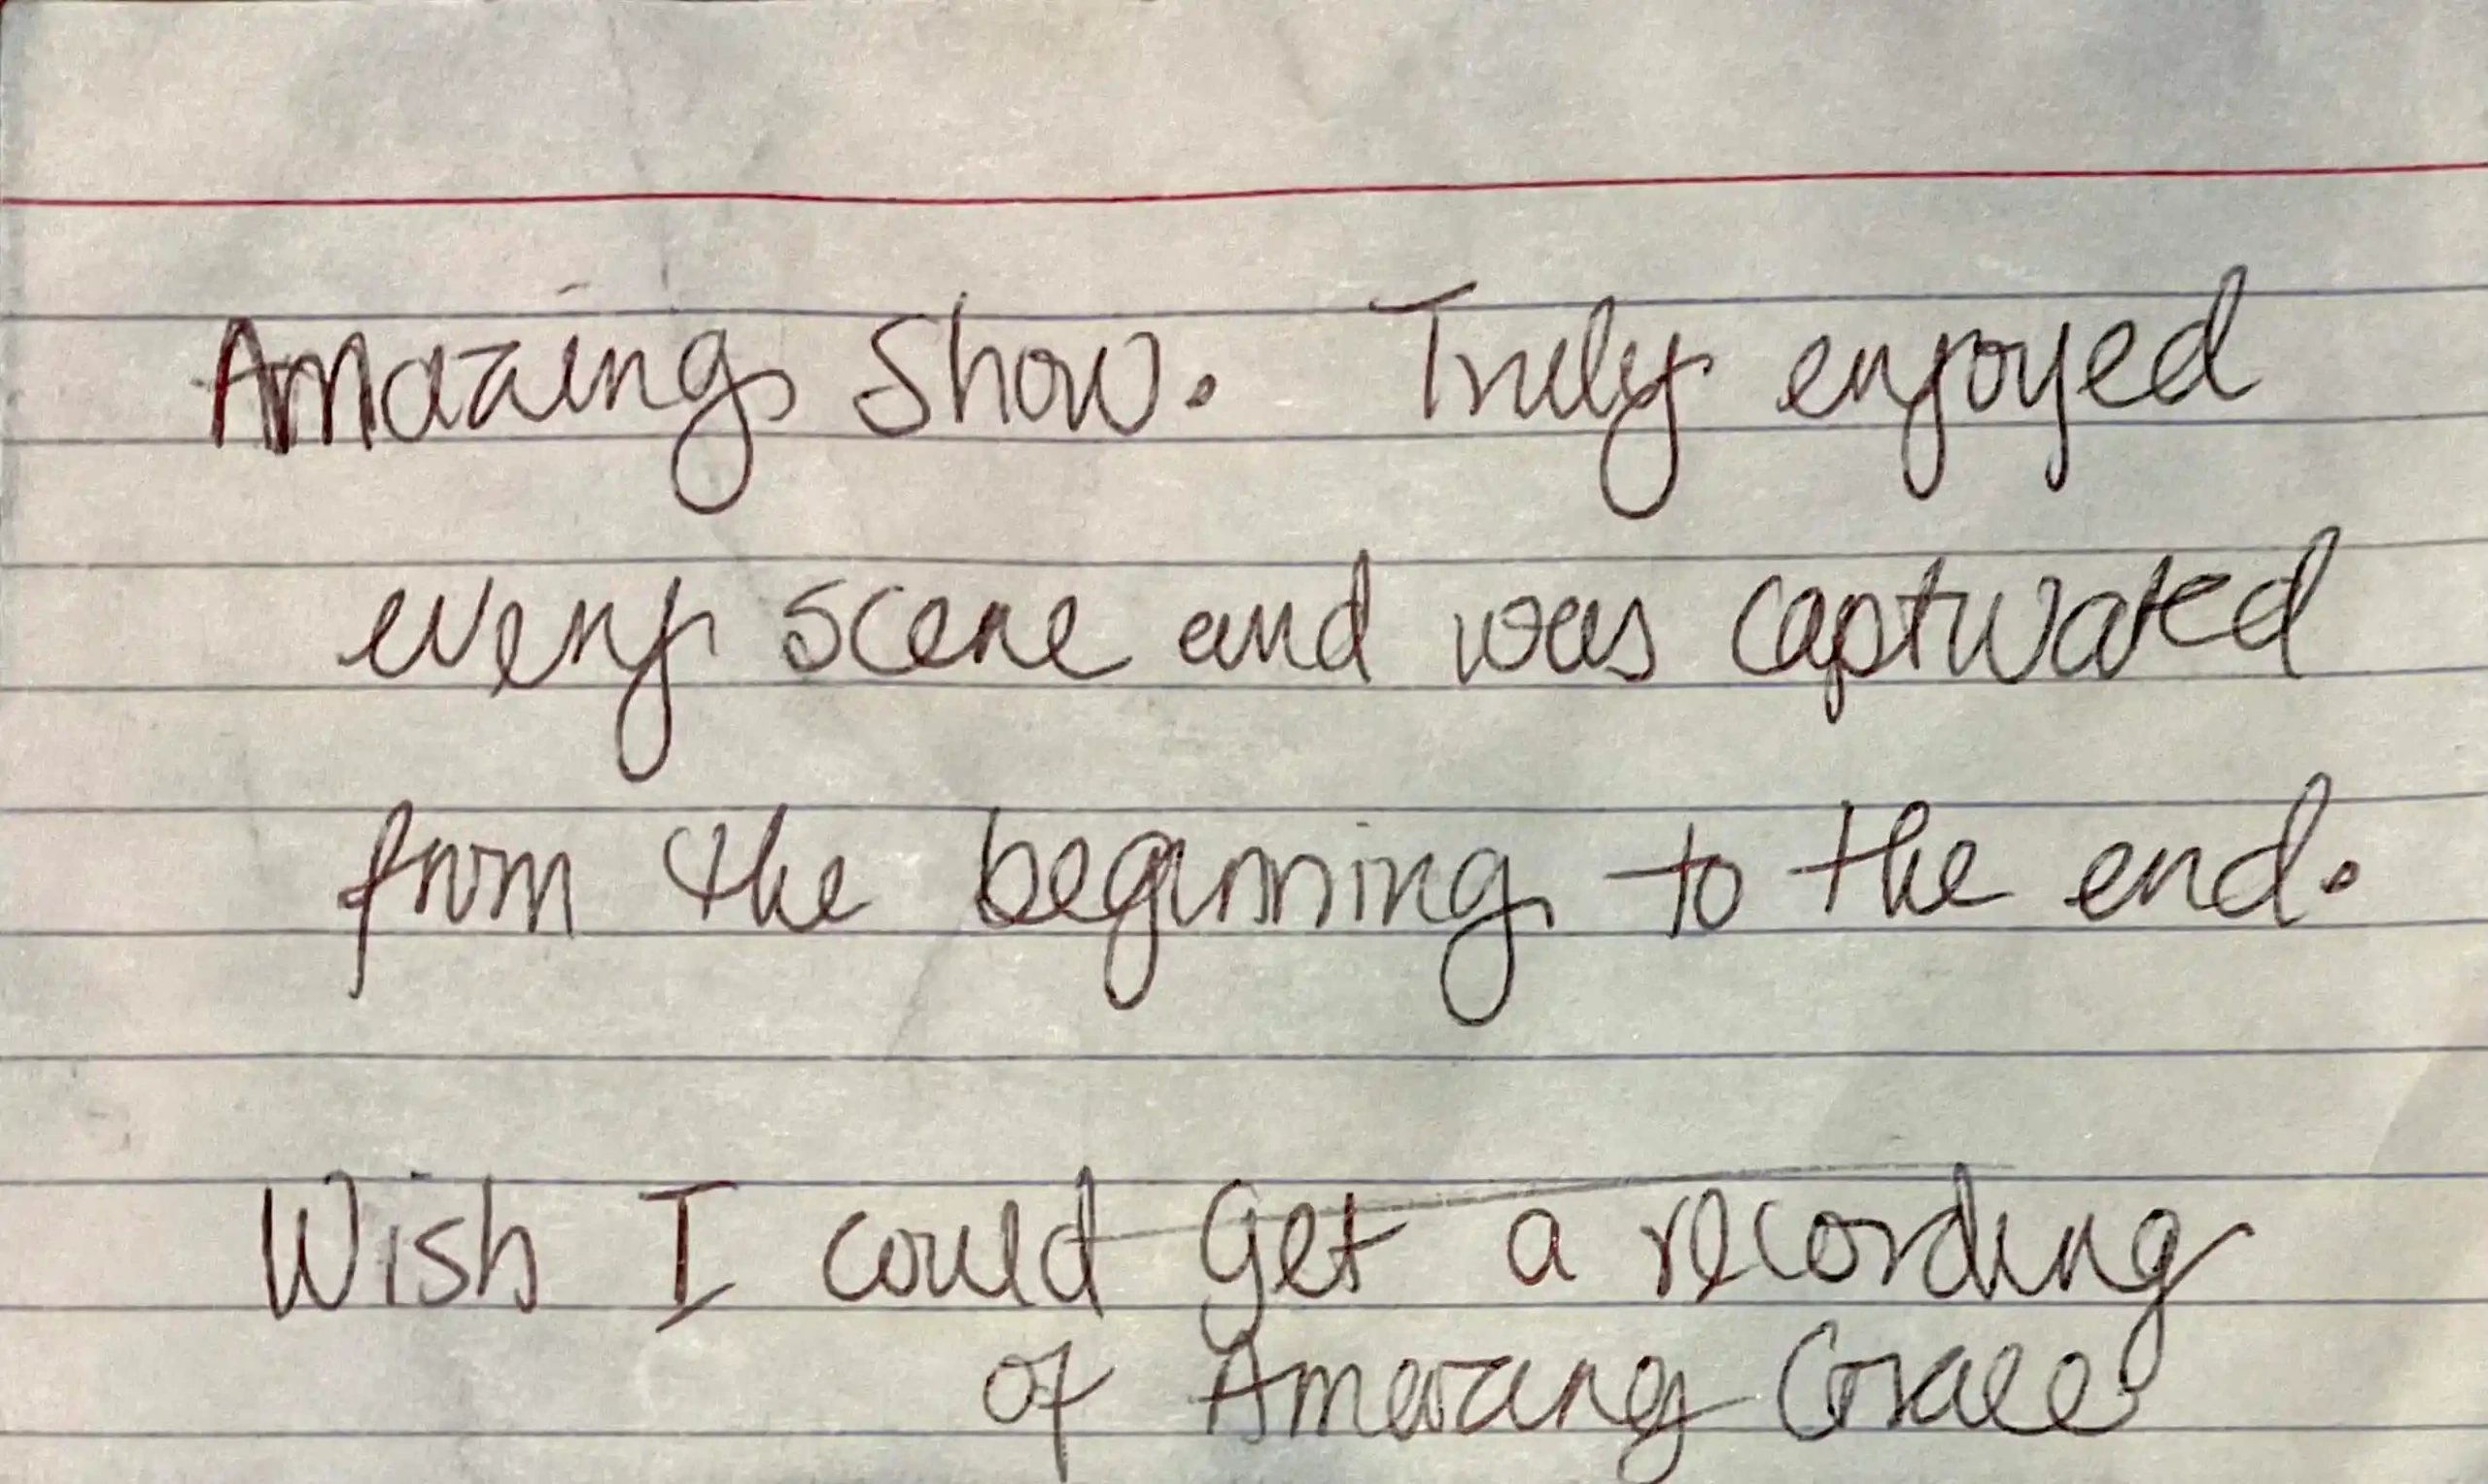 Amazing Show. Truly enjoyed
every scene and was captivated
from the beginning to the end.
Wish I could get a recording
of Amazing Grace